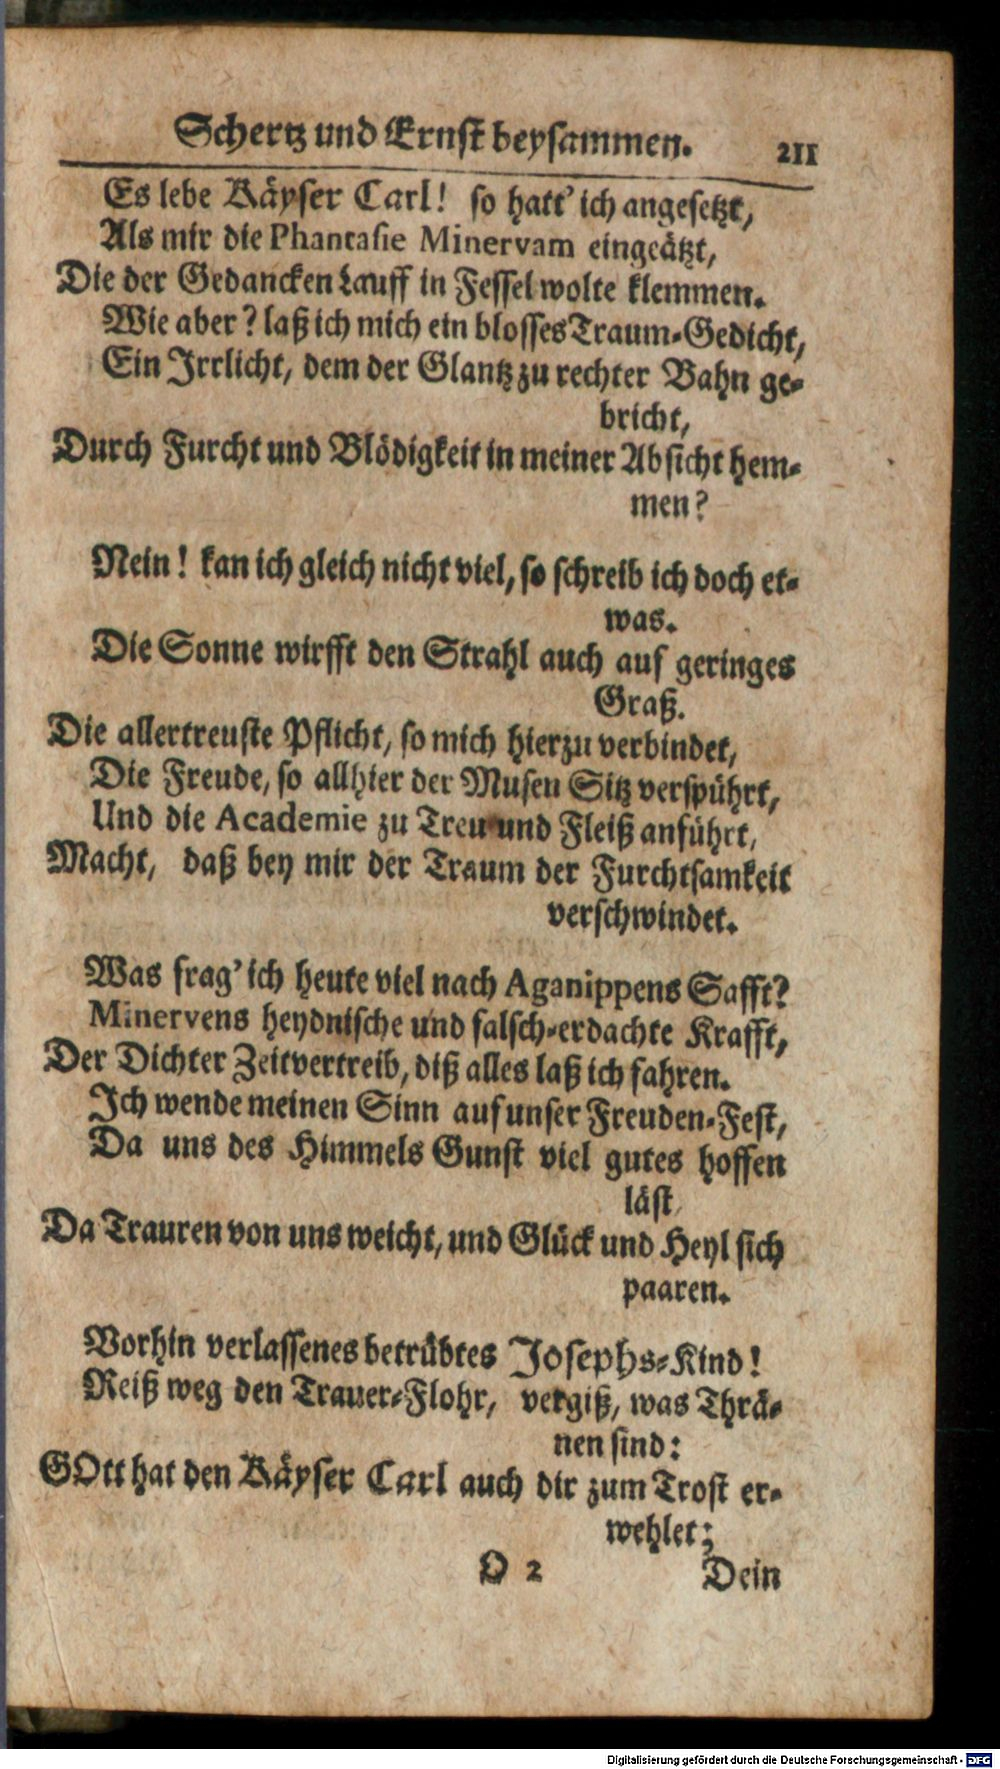 Schertz und Ernst beysammen. 211
Es lebe Käyser Carl! so hatt' ich angesetzt,
Als mir die Phantasie Minervam eingeätzt,
Die der Gedancken Lauff in Fessel wolte klemmen.
Wie aber? laß ich mich ein blosses Traum-Gedicht,
Ein Irrlicht, dem der Glantz zu rechter Bahn ge-
bricht,
Durch Furcht und Blödigkeit in meiner Absicht hem-
men?
Nein! kan ich gleich nicht viel, so schreib ich doch et-
was.
Die Sonne wirfft den Strahl auch auf geringes
Graß.
Die allertreuste Pflicht, so mich hierzu verbindet,
Die Freude, so allhier der Musen Sitz verspührt,
Und die Academie zu Treu und Fleiß anführt,
Macht, daß bey mir der Traum der Furchtsamkeit
verschwindet.
Was frag' ich heute viel nach Aganippens Safft?
Minervens heydnische und falsch-erdachte Krafft,
Der Dichter Zeitvertreib, diß alles laß ich fahren.
Ich wende meinen Sinn auf unser Freuden-Fest,
Da uns des Himmels Gunst viel gutes hoffen
läst
Da Trauren von uns weicht, und Glück und Heyl sich
paaren.
Vorhin verlassenes betrübtes Josephs-Kind!
Reiß weg den Trauer-Flohr, vergiß, was Thrä-
nen sind:
GOtt hat den Käyser Carl auch dir zum Trost er-
wehlet;
O 2 Dein
Digitalisierung gefördert durch die Deutsche Forschungsgemeinschaft - DFG